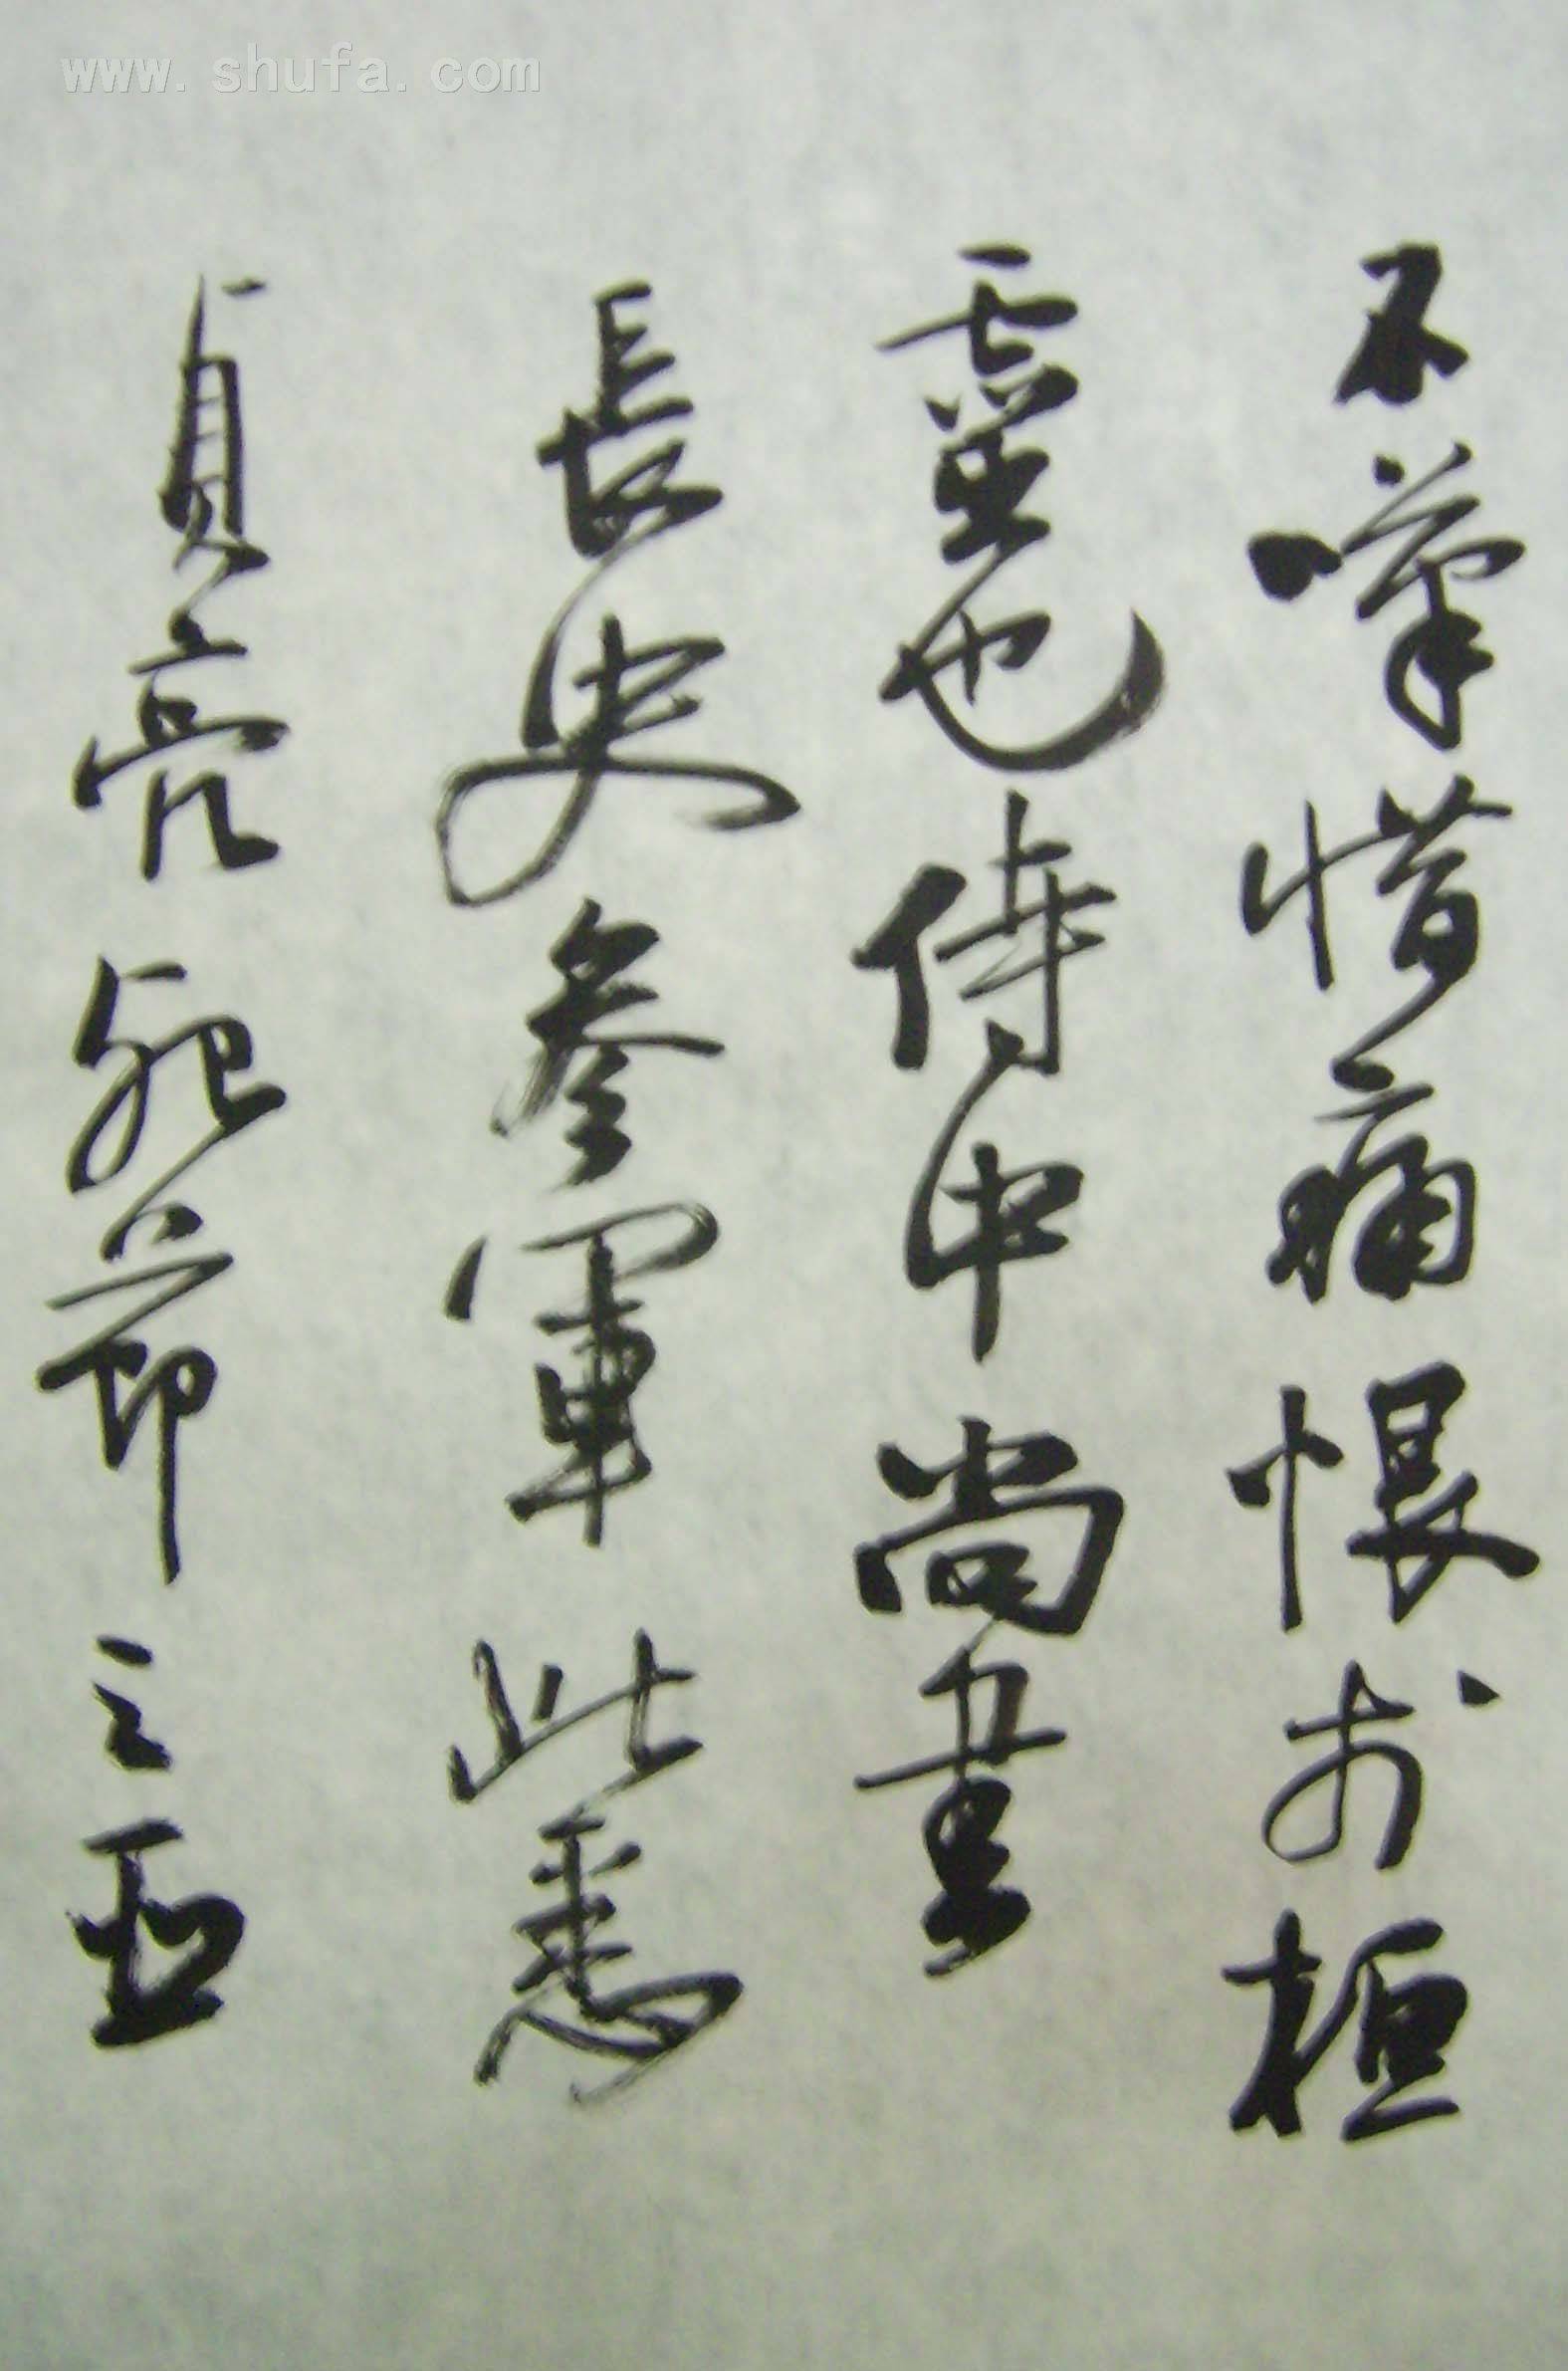 www.shufa.com
不嘆惜痛恨於桓
靈也侍中尚書
長史參軍此悉
貞亮死節之臣